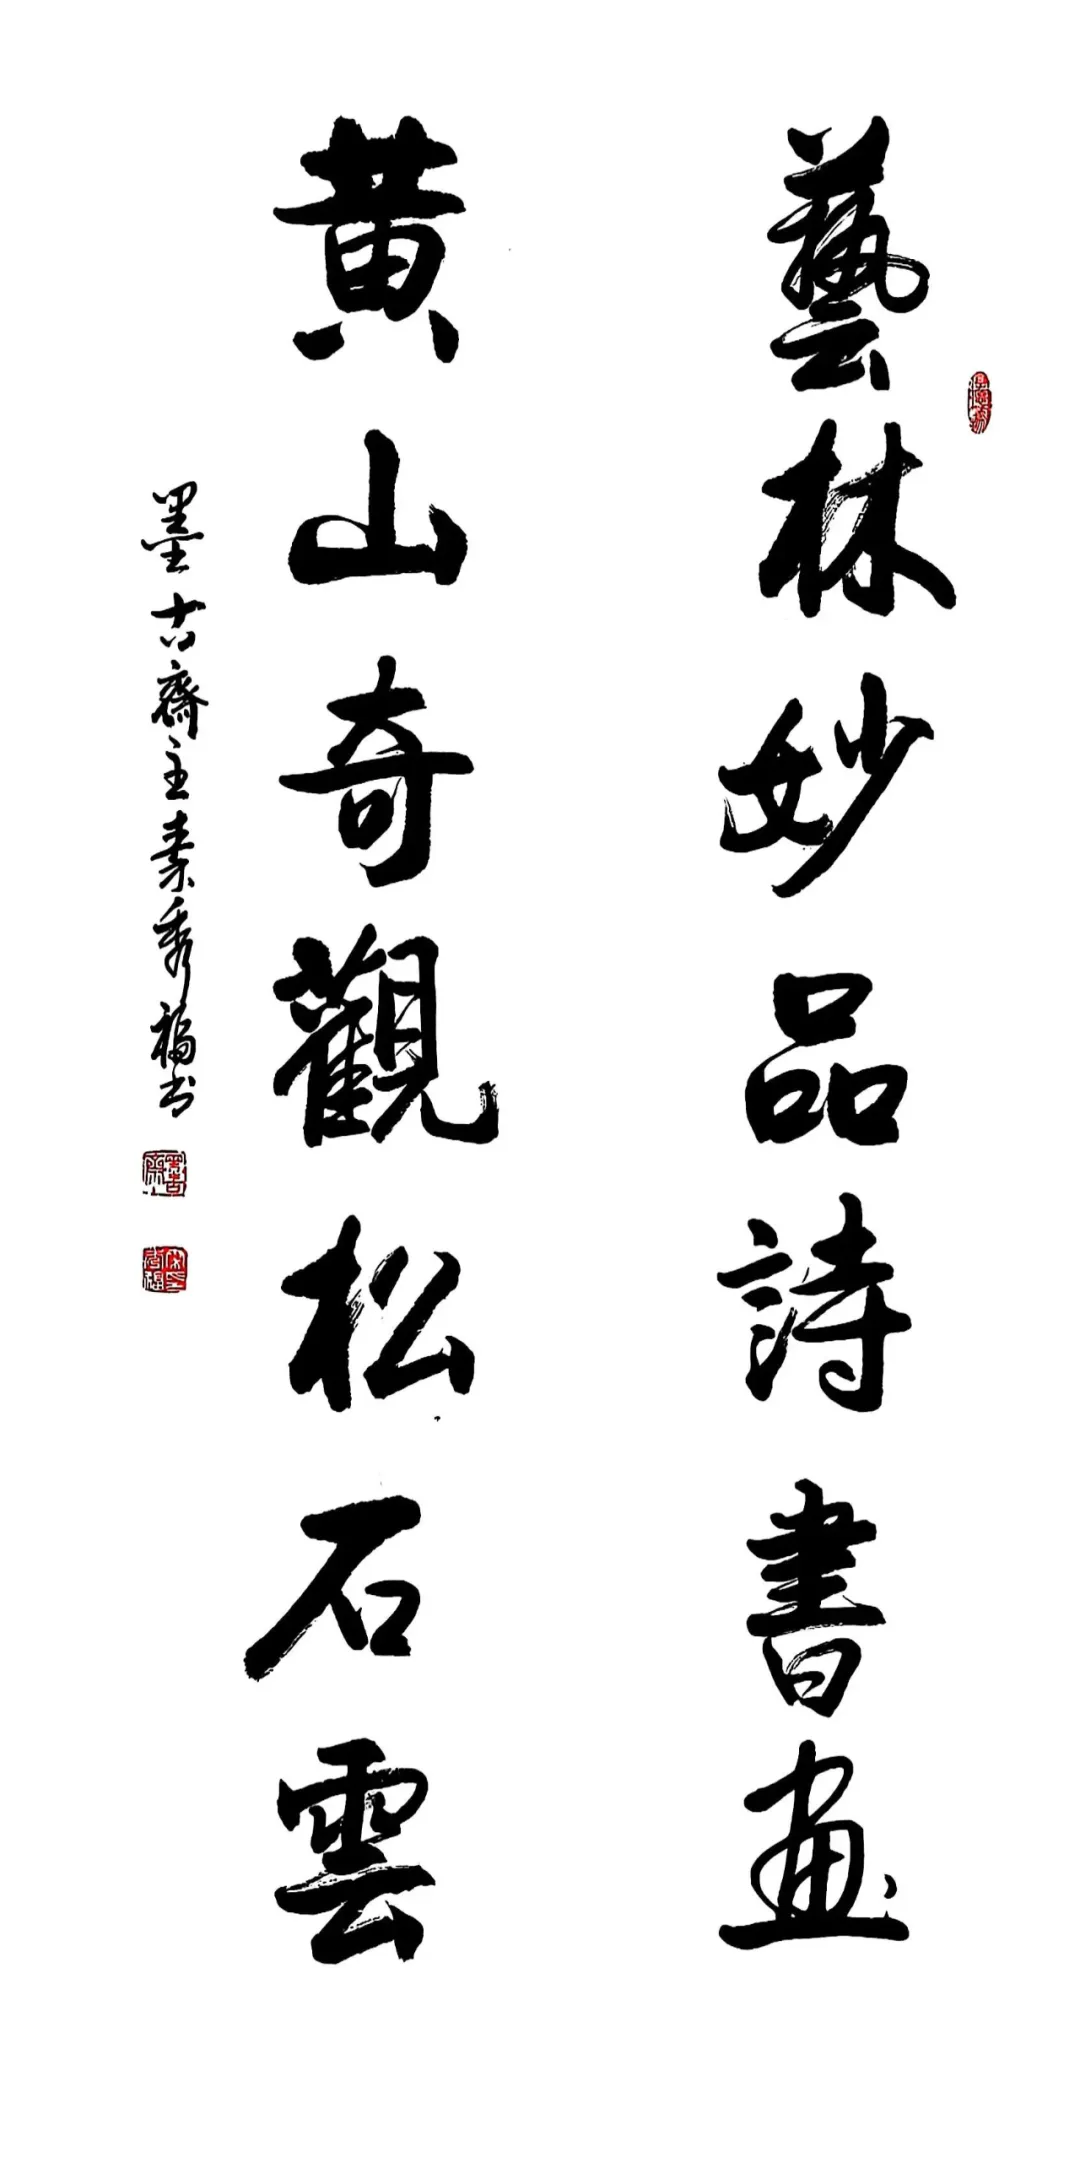 藝林妙品詩書画
黄山奇觀松石雲
墨古齋主秀福书